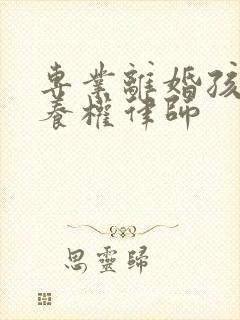 專業離婚孩
養權律師
思靈歸